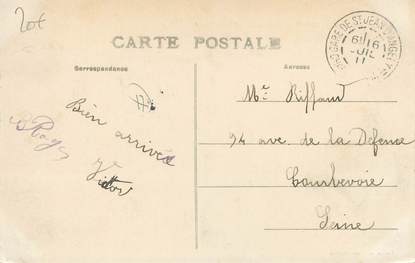 20€
CARTE POSTALE
Correspondance
Adresse
GARE DE ST JEAN D'ANGELY
Bien arrivée
Me Riffaud
94 ave. de la Défence
Courbevoie
Seine